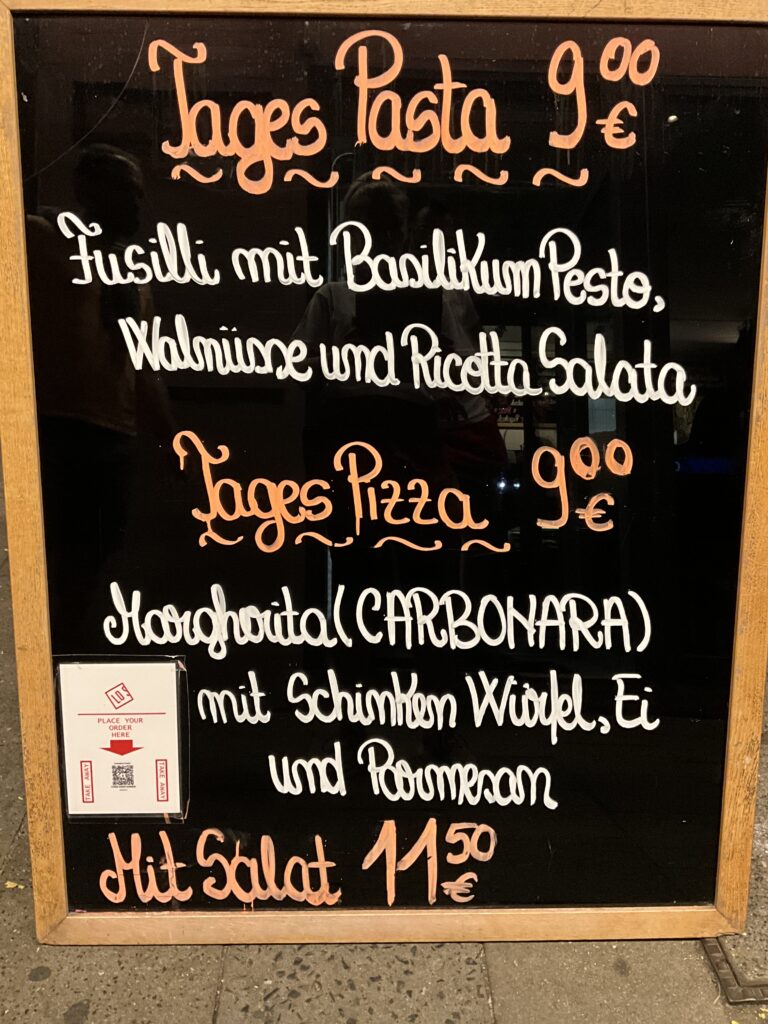 Tages Pasta 9⁰⁰ €
Fusilli mit Basilikum Pesto,
Walnüsse und Ricotta Salata
Tages Pizza 9⁰⁰ €
Margherita (CARBONARA)
mit Schinken Würfel, Ei
und Parmesan
Mit Salat 11⁵⁰ €
PLACE YOUR
ORDER
HERE
TAKE AWAY
TAKE AWAY